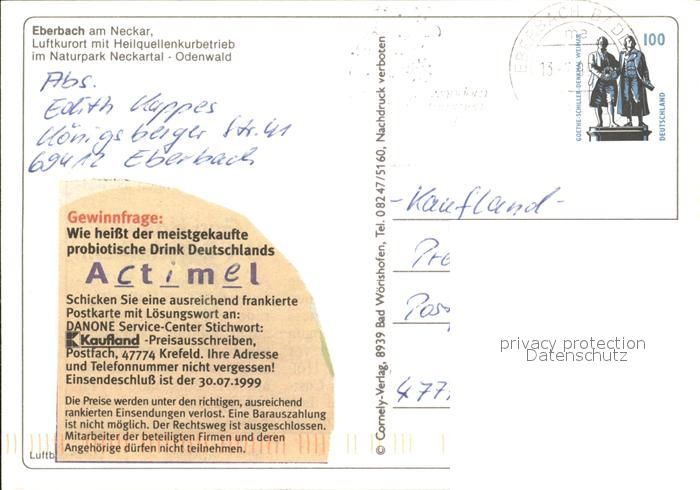 Eberbach am Neckar,
Luftkurort mit Heilquellenkurbetrieb
im Naturpark Neckartal - Odenwald
Abs.
Edith Kappes
Königsberger Str. 41
69412 Eberbach
Gewinnfrage:
Wie heißt der meistgekaufte
probiotische Drink Deutschlands
Actimel
Schicken Sie eine ausreichend frankierte
Postkarte mit Lösungswort an:
DANONE Service-Center Stichwort:
Kaufland -Preisausschreiben,
Postfach, 47774 Krefeld. Ihre Adresse
und Telefonnummer nicht vergessen!
Einsendeschluß ist der 30.07.1999
Die Preise werden unter den richtigen, ausreichend
rankierten Einsendungen verlost. Eine Barauszahlung
ist nicht möglich. Der Rechtsweg ist ausgeschlossen.
Mitarbeiter der beteiligten Firmen und deren
Angehörige dürfen nicht teilnehmen.
Luftb
© Cornely-Verlag, 8939 Bad Wörishofen, Tel. 08247/5160, Nachdruck verboten
EBERBACH, BADEN
13
GOETHE-SCHILLER-DENKMAL WEIMAR
100
DEUTSCHLAND
-Kaufland-
Pre
Pos
477
privacy protection
Datenschutz